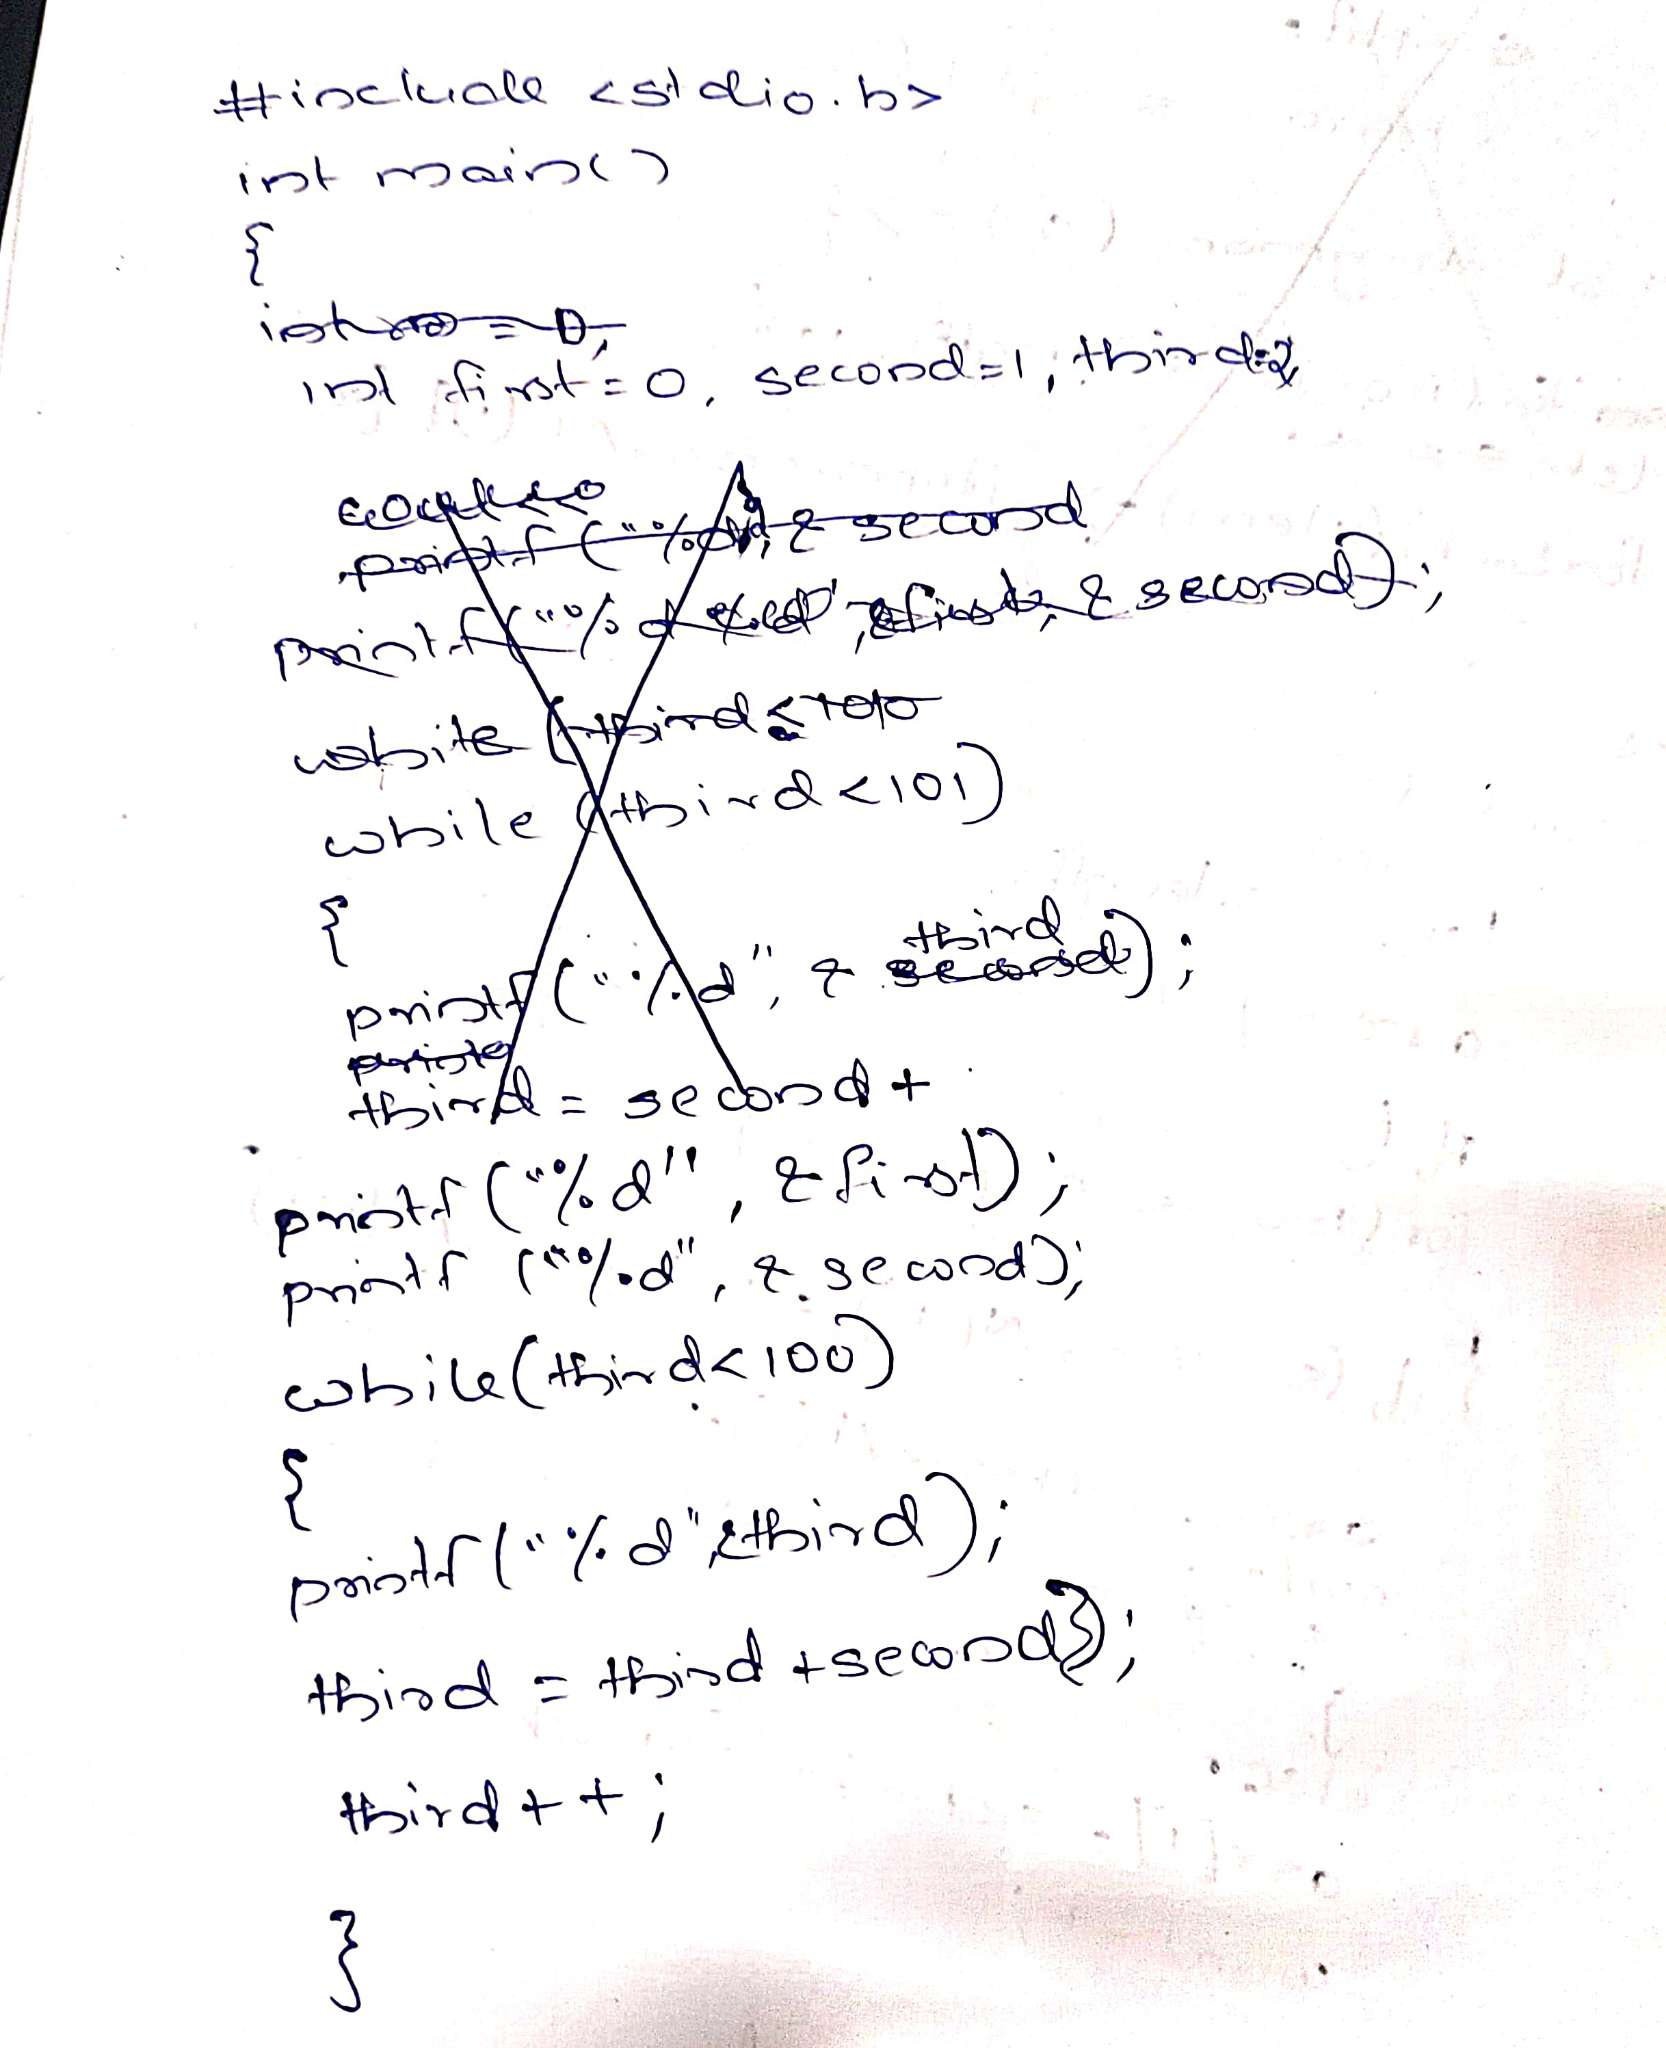 #include <stdio.h>
int main()
{
int first=0, second=1, third=2,
printf("%d
printf("%d %d", &first, & second);
while (third
while (third <101)
{
printf("%d", & third);
third = second +
printf("%d", & first);
printf ("%d", & second);
while(third<100)
{
printf("%d",&third);
third = third +second);
third++;
}